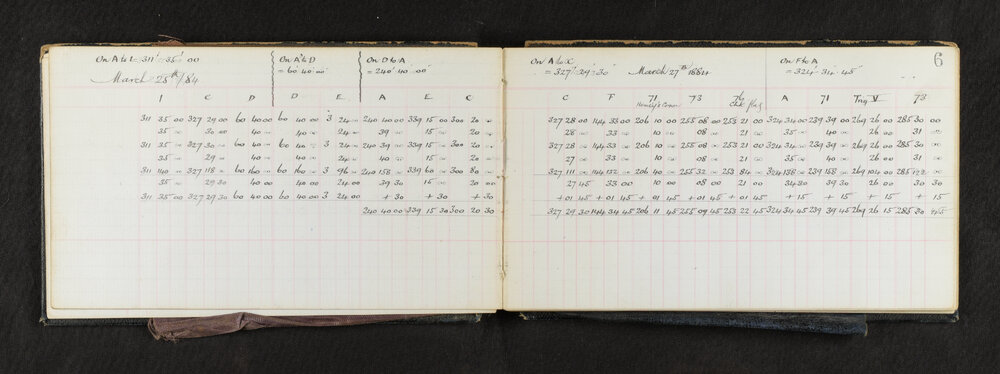 On A to 1 = 311° 35' 00
March 28th/84
On A to D
= 60 40 00
On D to A
= 240 40 00
1 C D D E A E C
311 35 00 327 29 00 60 40 00 60 40 00 3 24 00 240 40 00 339 15 00 300 20 00
35 00 30 00 40 00 40 00 24 00 39 00 15 00 20 00
311 35 00 327 30 00 60 40 00 60 40 00 3 24 00 240 39 00 339 15 00 300 20 00
35 00 29 00 40 00 40 00 24 00 40 00 15 00 20 00
311 140 00 327 118 00 60 160 00 60 160 00 3 96 00 240 158 00 339 60 00 300 80 00
35 00 29 30 40 00 40 00 24 00 39 30 15 00 20 00
311 35 00 327 29 30 60 40 00 60 40 00 3 24 00 + 30 + 30 + 30
240 40 00 339 15 30 300 20 30
6
On A to C
= 327° 29' 30
March 27th 1884
On F to A
= 324° 34' 45
C F 71 73 76 A 71 Trig V 73
327 28 00 144 33 00 206 10 00 255 08 00 253 21 00 324 34 00 239 39 00 269 26 00 285 30 00
28 00 33 00 10 00 08 00 21 00 35 00 40 00 26 00 31 00
327 28 00 144 33 00 206 10 00 255 08 00 253 21 00 324 34 00 239 39 00 269 26 00 285 30 00
27 00 33 00 10 00 08 00 21 00 35 00 40 00 26 00 31 00
327 111 00 144 132 00 206 40 00 255 32 00 253 84 00 324 138 00 239 158 00 269 104 00 285 122 00
27 45 33 00 10 00 08 00 21 00 34 30 39 30 26 00 30 30
+ 01 45 + 01 45 + 01 45 + 01 45 + 01 45 + 15 + 15 + 15 + 15
327 29 30 144 34 45 206 11 45 255 09 45 253 22 45 324 34 45 239 39 45 269 26 15 285 30 45